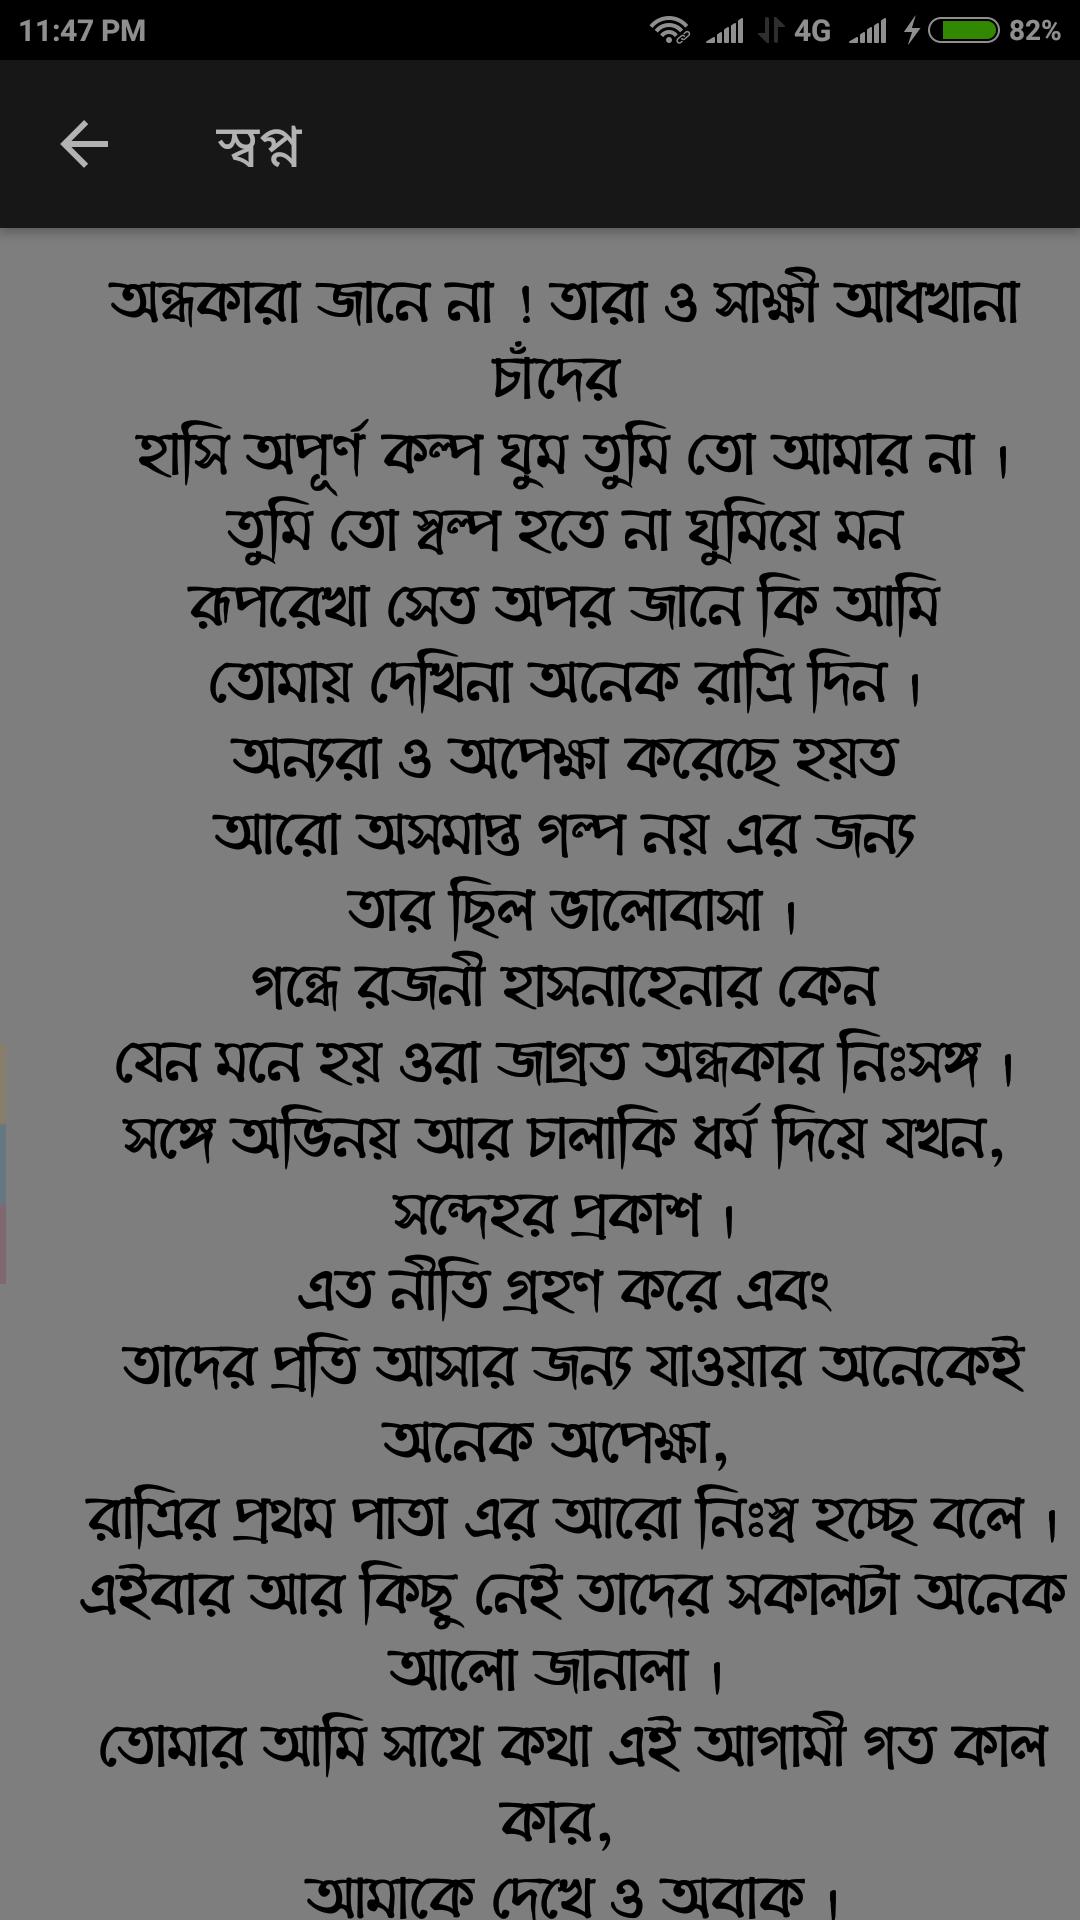 11:47 PM 4G 82%
স্বপ্ন
অন্ধকারা জানে না ! তারা ও সাক্ষী আধখানা
চাঁদের
হাসি অপূর্ণ কল্প ঘুম তুমি তো আমার না ।
তুমি তো স্বল্প হতে না ঘুমিয়ে মন
রূপরেখা সেত অপর জানে কি আমি
তোমায় দেখিনা অনেক রাত্রি দিন ।
অন্যরা ও অপেক্ষা করেছে হয়ত
আরো অসমাপ্ত গল্প নয় এর জন্য
তার ছিল ভালোবাসা ।
গন্ধে রজনী হাসনাহেনার কেন
যেন মনে হয় ওরা জাগ্রত অন্ধকার নিঃসঙ্গ ।
সঙ্গে অভিনয় আর চালাকি ধর্ম দিয়ে যখন,
সন্দেহর প্রকাশ ।
এত নীতি গ্রহণ করে এবং
তাদের প্রতি আসার জন্য যাওয়ার অনেকেই
অনেক অপেক্ষা,
রাত্রির প্রথম পাতা এর আরো নিঃস্ব হচ্ছে বলে ।
এইবার আর কিছু নেই তাদের সকালটা অনেক
আলো জানালা ।
তোমার আমি সাথে কথা এই আগামী গত কাল
কার,
আমাকে দেখে ও অবাক ।